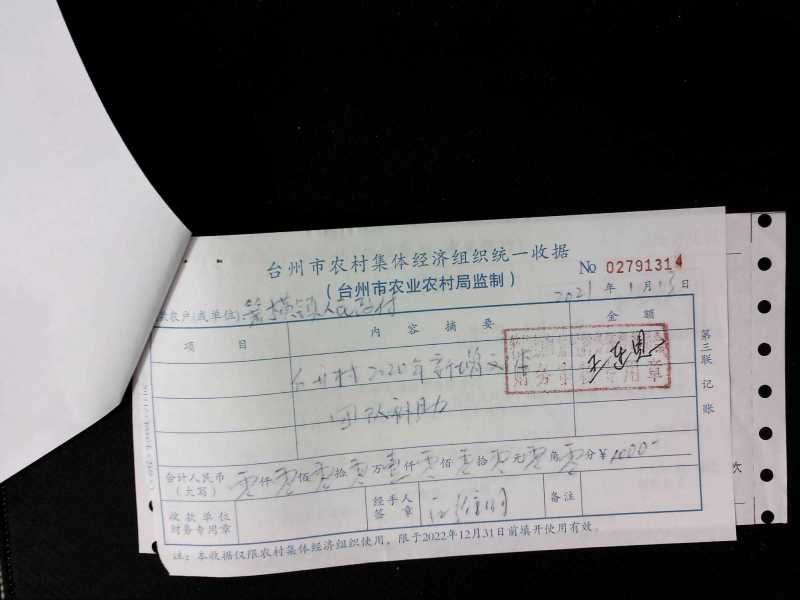 台州市农村集体经济组织统一收据
(台州市农业农村局监制)
No 02791314
2021 年 1 月 13 日
农户(或单位): 箬横镇人民政府
项 目 内 容 摘 要 金 额
2020年新增文体
团队补助
合计人民币
(大写) 零仟零佰零拾零万壹仟零佰零拾零元零角零分 ¥ 1000-
收款单位
财务专用章
经手人
签 章
备注
注:本收据仅限农村集体经济组织使用,限于2022年12月31日前填开使用有效。
第三联 记账
次